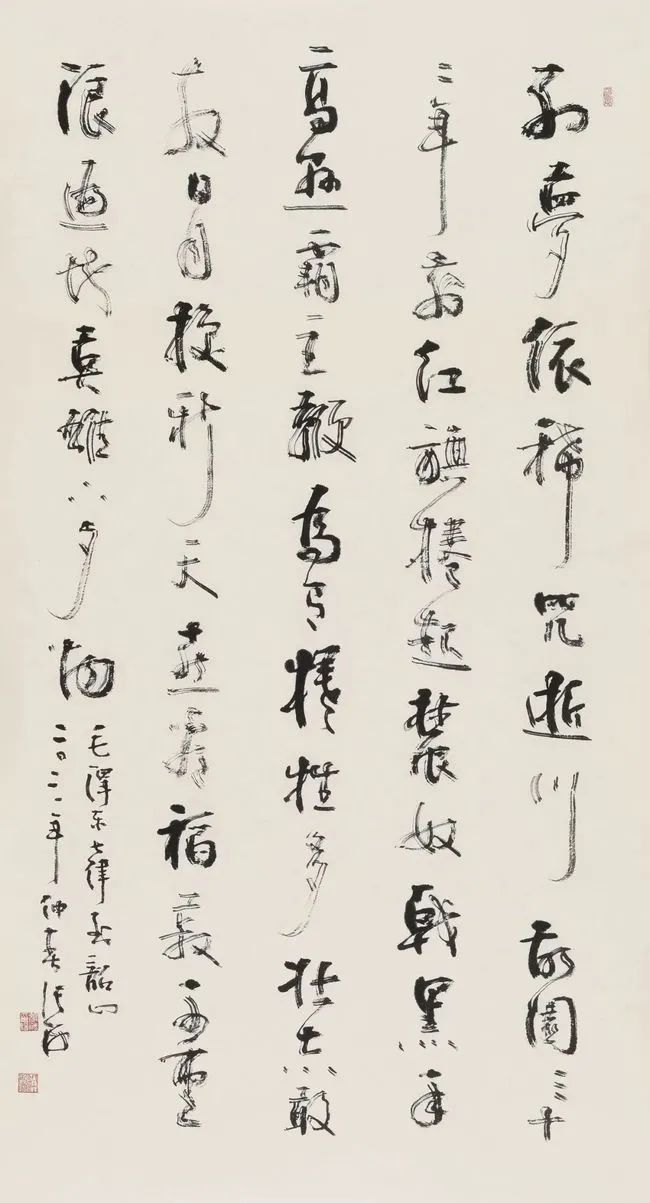 別夢依稀咒逝川故園三十
二年前紅旗捲起農奴戟黑手
高懸霸主鞭為有犧牲多壯志敢
教日月換新天喜看稻菽千重
浪遍地英雄下夕煙
毛澤东七律到韶山
二〇二一年仲春